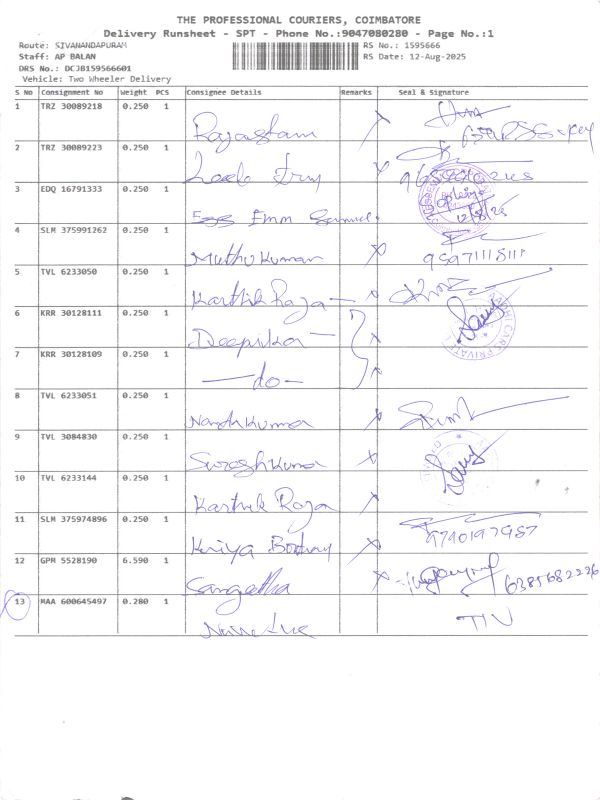 THE PROFESSIONAL COURIERS, COIMBATORE
Delivery Runsheet - SPT - Phone No.:9047080280 - Page No.:1
Route: SIVANANDAPURAM RS No.: 1595666
Staff: AP BALAN RS Date: 12-Aug-2025
DRS No.: DCJB159566601
Vehicle: Two Wheeler Delivery
S No Consignment No Weight PCS Consignee Details Remarks Seal & Signature
1 TRZ 30089218 0.250 1
Rajastam
2 TRZ 30089223 0.250 1
3 EDQ 16791333 0.250 1
Emm Samuel
12/8/25
4 SLM 375991262 0.250 1
Muthu Kumar
5 TVL 6233050 0.250 1
Karthik Raja
6 KRR 30128111 0.250 1
Deepika
7 KRR 30128109 0.250 1
-do-
8 TVL 6233051 0.250 1
Nandhkumar
9 TVL 3084830 0.250 1
Sureshkumar
10 TVL 6233144 0.250 1
Karthik Raja
11 SLM 375974896 0.250 1
9790197987
12 GPM 5528190 6.590 1
Sangetha 6385682226
13 MAA 600645497 0.280 1